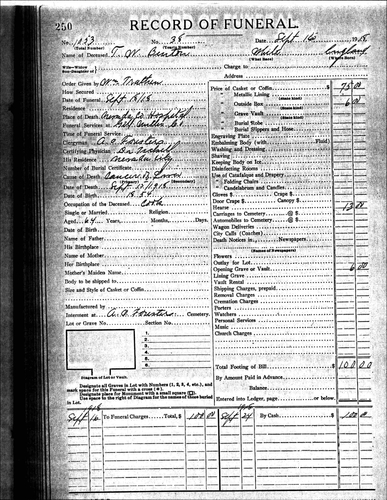 250 RECORD OF FUNERAL.
No. 1153 No. 38 Date Sept 16 1918
(Total Number) (Yearly Number)
Name of Deceased T. W. White England
(What Race) (Where Born)
Wife—Widow
Son-Daughter of Charge to
Address
Order Given by Wm
How Secured
Date of Funeral Sept 15/18
Residence
Place of Death Nevada Co Hospital
Funeral Services at
Time of Funeral Service
Clergyman A. O. Foresters
Certifying Physician Dr.
His Residence Nevada City
Number of Burial Certificate
Cause of Death Cancer of
(Primary) (Secondary)
Date of Death Sept 13/1918
Date of Birth
Occupation of the Deceased Cook
Single or Married Religion
Aged 64 Years, Months, Days.
Date of Birth
Name of Father
His Birthplace
Name of Mother
Her Birthplace
Mother's Maiden Name
Body to be shipped to
Size and Style of Casket or Coffin
Manufactured by
Interment at A. O. Foresters Cemetery.
Lot or Grave No. Section No.
1
2
3
4
5
6
Diagram of Lot or Vault.
Designate all Graves in Lot with Numbers (1, 2, 3, 4, etc.), and
mark space for this Funeral with a cross (+).
Designate place for Monument with a small square (□).
Use space to the right of Diagram for names of those buried
in Lot.
Price of Casket or Coffin $ 75 00
" Metallic Lining
(State Kind)
" Outside Box 6 00
(State Kind)
" Grave Vault
(State Kind)
" Burial Robe
(State Kind)
" Burial Slippers and Hose
Engraving Plate
Embalming Body (with Fluid)
Washing and Dressing
Shaving
Keeping Body on Ice
Disinfecting Rooms
Use of Catafalque and Drapery
" Folding Chairs
" Candelabrum and Candles
Gloves $ Crape $
Door Crape $ Canopy $
Hearse 13 00
Carriages to Cemetery @ $
Automobiles to Cemetery @ $
Wagon Deliveries
City Calls (Coaches)
Death Notices in Newspapers
(Names of Newspapers)
Flowers
Outlay for Lot
Opening Grave or Vault 6 00
Lining Grave
Vault Rental
Shipping Charges, prepaid
Removal Charges
Cremation Charges
Porters
Watchers
Personal Services
Music
Church Charges
Total Footing of Bill $ 100 00
By Amount Paid in Advance
Balance
Entered into Ledger, page or below.
1918
Sept 16 To Funeral Charges Total, $ 100 00 Sept 24 By Cash $ 100 0